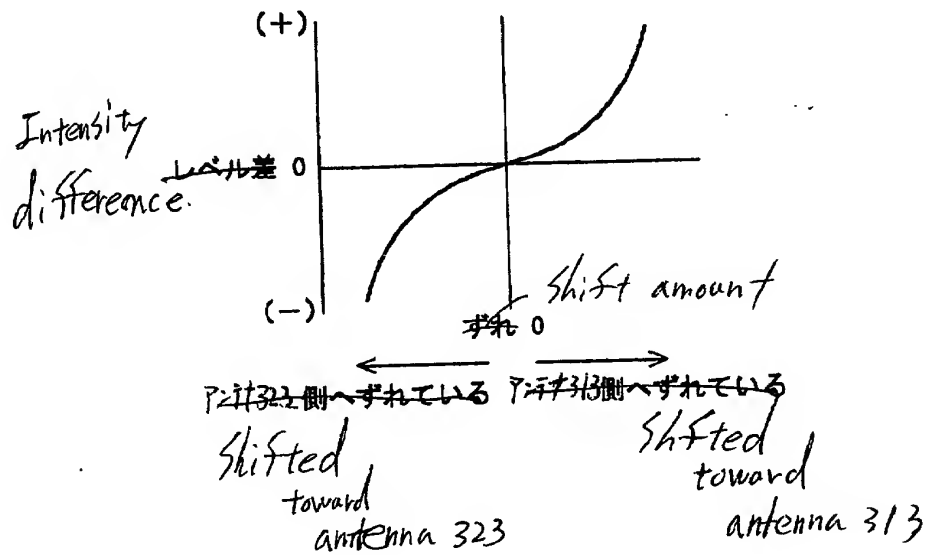 (+)
Intensity
difference.
レベル差 0
(-)
Shift amount
ずれ 0
アンテナ323側へずれている アンテナ313側へずれている
Shifted
toward
antenna 323
Shfted
toward
antenna 313